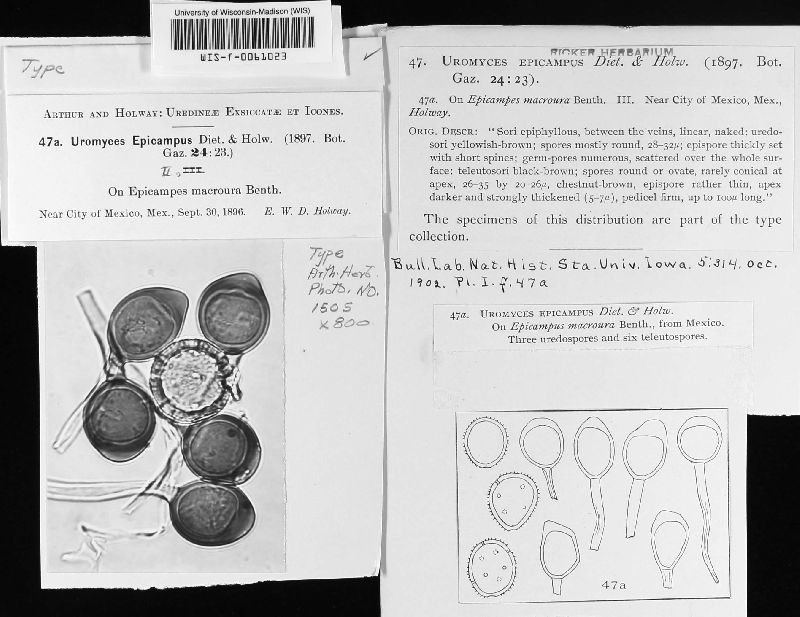 University of Wisconsin-Madison (WIS)
WIS-f-0061023
Type
ARTHUR AND HOLWAY: UREDINEÆ EXSICCATÆ ET ICONES.
47a. Uromyces Epicampus Diet. & Holw. (1897. Bot.
Gaz. 24:23.)
II, III.
On Epicampes macroura Benth.
Near City of Mexico, Mex., Sept. 30, 1896. E. W. D. Holway.
Type
Arth. Herb.
Photo. NO.
1505
x 800
RICKER HERBARIUM
47. UROMYCES EPICAMPUS Diet. & Holw. (1897. Bot.
Gaz. 24:23).
47a. On Epicampes macroura Benth. III. Near City of Mexico, Mex.,
Holway.
ORIG. DESCR: "Sori epiphyllous, between the veins, linear, naked; uredo-
sori yellowish-brown; spores mostly round, 28–32µ; epispore thickly set
with short spines; germ-pores numerous, scattered over the whole sur-
face: teleutosori black-brown; spores round or ovate, rarely conical at
apex, 26–35 by 20–26µ, chestnut-brown, epispore rather thin, apex
darker and strongly thickened (5–7µ), pedicel firm, up to 100µ long."
The specimens of this distribution are part of the type
collection.
Bull. Lab. Nat. Hist. Sta. Univ. Iowa. 5:314. Oct.
1902. Pl. I. f. 47a
47a. UROMYCES EPICAMPUS Diet. & Holw.
On Epicampus macroura Benth., from Mexico.
Three uredospores and six teleutospores.
47a